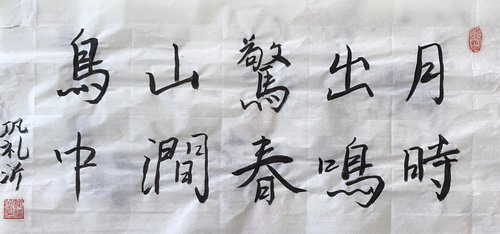 月出驚山鳥
時鳴春澗中
巩礼沂